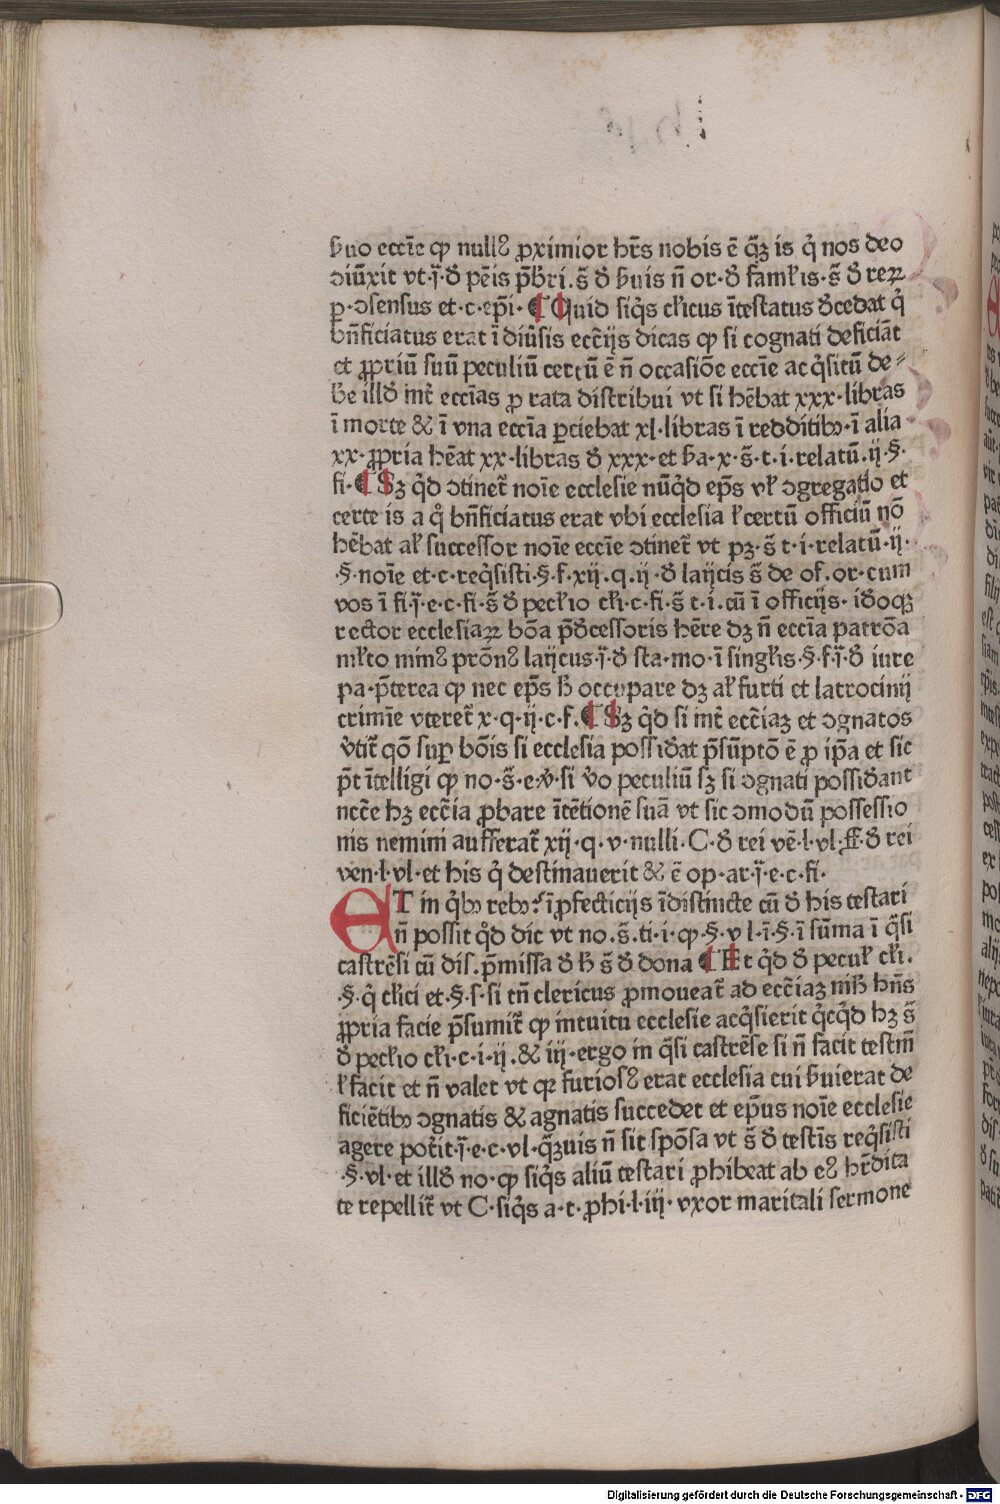 ẜuo eccīe ꝙ nullꝰ ꝓximior hr̄s nobis ē q̄ꝫ is q̇ nos deo
ↄiūxit vt·j̄·ð pēis p̄bri·s̄ ð ẜuis n̄ or·ð famłis·s̄ ð reꝝ
ꝑ·ↄsensus et·c·ep̄i· ¶ Quid siq̇s cłicus ītestatus ðcedat q̇
bn̄ficiatus erat ī diūsis ecc̄ijs dicas ꝙ si cognati deficiāt
et ꝓpriū suū peculiū certū ē n̄ occasiōe eccīe acq̇sitū de⸗
be illð int̄ eccīas ꝓ rata distribui vt si hēbat xxx·libras
ī morte & ī vna eccīa ꝑciebat xl·libras ī redditibꝫ·ī alia
xx·ꝓpria hēat xx·libras ð xxx·et ẜa·x·s̄·t·i·relatū·ij·§·
fi·¶ Sꝫ q̇d ↄtinet̄ noīe ecclesie nūq̇d ep̄s vł ↄgregatio et
certe is a q̇ bn̄ficiatus erat vbi ecclesia ł certū officiū nō
hēbat ał successor noīe eccīe ↄtinet̄ vt pꝫ·s̄ t·i·relatū·ij·
·§·noīe et·c·req̇sisti·§·f·xij·q·ij·ð laijcis s̄ de of·or·cum
vos ī fi·j̄·e·c·fi·s̄ ð pecłio cłi·c·fi·s̄ t·i·cū ī officijs·idoqꝫ
rector ecclesiaꝝ bōa p̄ðcessoris hēre dꝫ n̄ eccīa patrōa
młto minꝰ prōnꝰ laijcus·j̄·ð sta·mo·ī singłis·§·f·j̄·ð iure
pa·p̄terea ꝙ nec ep̄s ħ occupare dꝫ ał furti et latrocinij
crimīe vteret̄ x·q·ij·c·f·¶ Sꝫ q̇d si int̄ ecc̄iaꝫ et ↄgnatos
v̇tit̄ qō suꝑ bōis si ecclesia possiðat p̄sūptō ē ꝓ ip̄a et sic
p̄t ītelligi ꝙ no·s̄·e·v̇·si v̇o peculiū sꝫ si ↄgnati possiðant
ncc̄e hꝫ ecc̄ia ꝓbare ītētionē suā vt sic ↄmodū possessio
nis nemini aufferat̄ xij·q·v·nulli·C·ð rei vē·l·vl·ff·ð rei
ven·l·vl·et his q̇ destinauerit & ē op·ar·j̄·e·c·fi·
ET in q̇bꝫ rebꝫ? īꝓfecticijs īdistincte cū ð his testari
n̄ possit q̇d dic vt no·s̄·ti·i·ꝙ·§·v l·ī·§·ī sūma ī q̄si
castrēsi cū dis·p̄missa ð ħ s̄ ð dona ¶ Et q̇d ð pecuł cłi·
·§·q̇ cłici et·§·s·si tn̄ clericus ꝓmoueat̄ ad ecc̄iaꝫ niħ hn̄s
ꝓpria facie p̄sumit̄ ꝙ intuitu ecclesie acq̇sierit q̇cq̇d hꝫ s̄
ð pecłio cłi·c·i·ij·& iij·ergo in q̄si castrēse si n̄ facit testm̄
ł facit et n̄ valet vt qꝛ furiosꝰ erat ecclesia cui ẜuierat de
ficiētibꝫ ↄgnatis & agnatis succedet et ep̄us noīe ecclesie
agere pot̄it·j̄·e·c·vl·q̄ꝫuis n̄ sit spōsa vt s̄ ð testīs req̇sisti
·§·vl·et illð no·ꝙ siq̇s aliū testari ꝓhibeat ab eꝰ hr̄dita
te repellit̄ vt C·siq̇s a·t·ꝓhi·l·iij·vxor maritali sermone
Digitalisierung gefördert durch die Deutsche Forschungsgemeinschaft - DFG